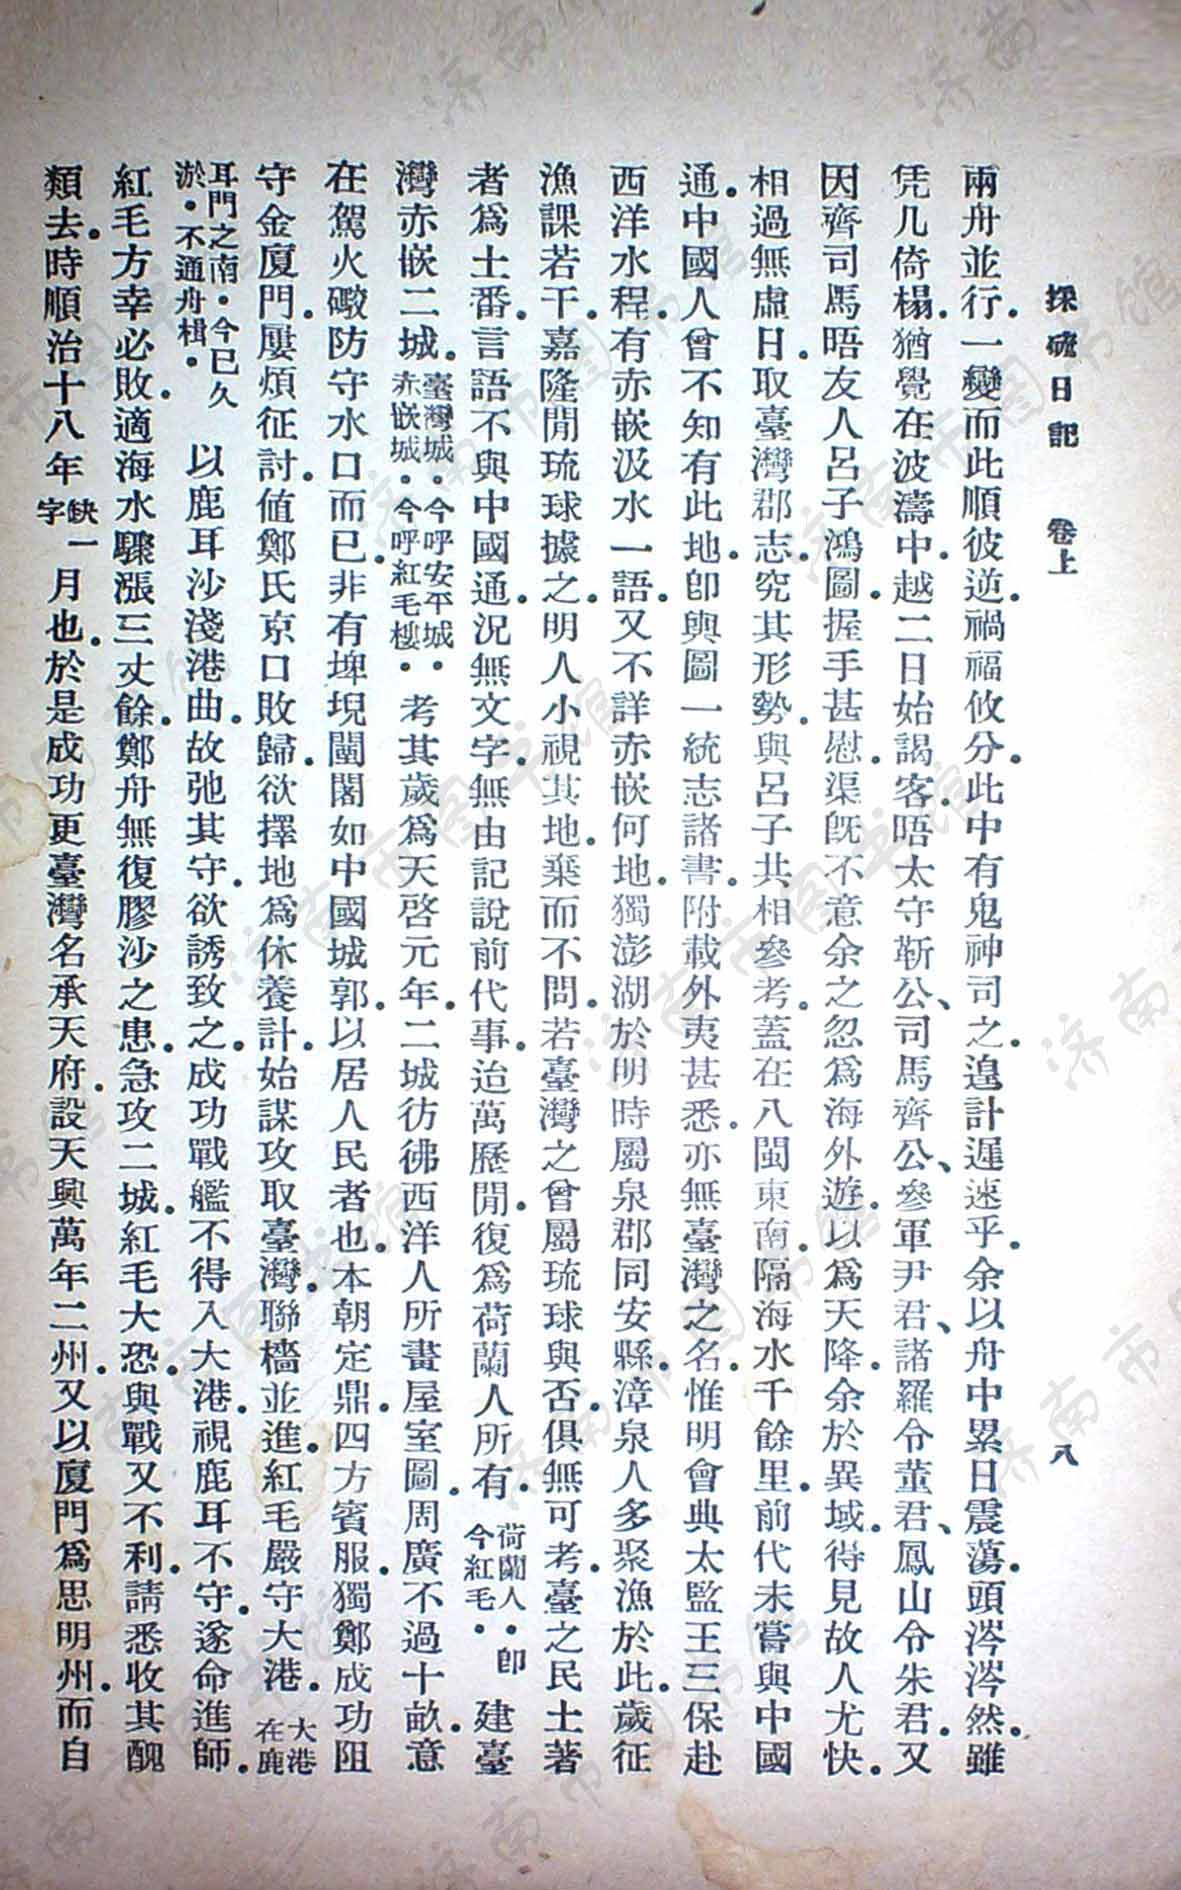 採硫日記　卷上　八
兩舟並行。一變而此順彼逆。禍福攸分。此中有鬼神司之。遑計遲速乎。余以舟中累日震蕩。頭涔涔然。雖
凭几倚榻。猶覺在波濤中。越二日始謁客。晤太守靳公、司馬齊公、參軍尹君、諸羅令董君、鳳山令朱君。又
因齊司馬晤友人呂子鴻圖。握手甚慰。渠旣不意余之忽爲海外遊。以爲天降。余於異域。得見故人尤快。
相過無虛日。取臺灣郡志。究其形勢。與呂子共相參考。蓋在八閩東南。隔海水千餘里。前代未嘗與中國
通。中國人曾不知有此地。卽輿圖一統志諸書。附載外夷甚悉。亦無臺灣之名。惟明會典太監王三保赴
西洋水程。有赤嵌汲水一語。又不詳赤嵌何地。獨澎湖於明時屬泉郡同安縣。漳泉人多聚漁於此。歲征
漁課若干。嘉隆間琉球據之。明人小視其地。棄而不問。若臺灣之曾屬琉球與否。俱無可考。臺之民土著
者爲土番。言語不與中國通。況無文字。無由記說前代事。迨萬歷間。復爲荷蘭人所有。荷蘭人。卽今紅毛。建臺
灣赤嵌二城。臺灣城。今呼安平城。赤嵌城。今呼紅毛樓。考其歲爲天啓元年。二城彷彿西洋人所畫屋室圖。周廣不過十畝。意
在駕火礮防守水口而已。非有埤堄闉闍如中國城郭。以居人民者也。本朝定鼎。四方賓服。獨鄭成功阻
守金廈門。屢煩征討。値鄭氏京口敗歸。欲擇地爲休養計。始謀攻取臺灣。聯檣並進。紅毛嚴守大港。大港在鹿
耳門之南。今已久淤。不通舟楫。以鹿耳沙淺港曲。故弛其守。欲誘致之。成功戰艦不得入大港。視鹿耳不守。遂命進師。
紅毛方幸必敗。適海水驟漲三丈餘。鄭舟無復膠沙之患。急攻二城。紅毛大恐。與戰又不利。請悉收其醜
類去。時順治十八年缺字一月也。於是成功更臺灣名承天府。設天興萬年二州。又以廈門爲思明州。而自